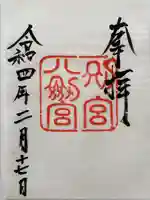 奉拝
別宮
八剣宮
令和四年二月十七日